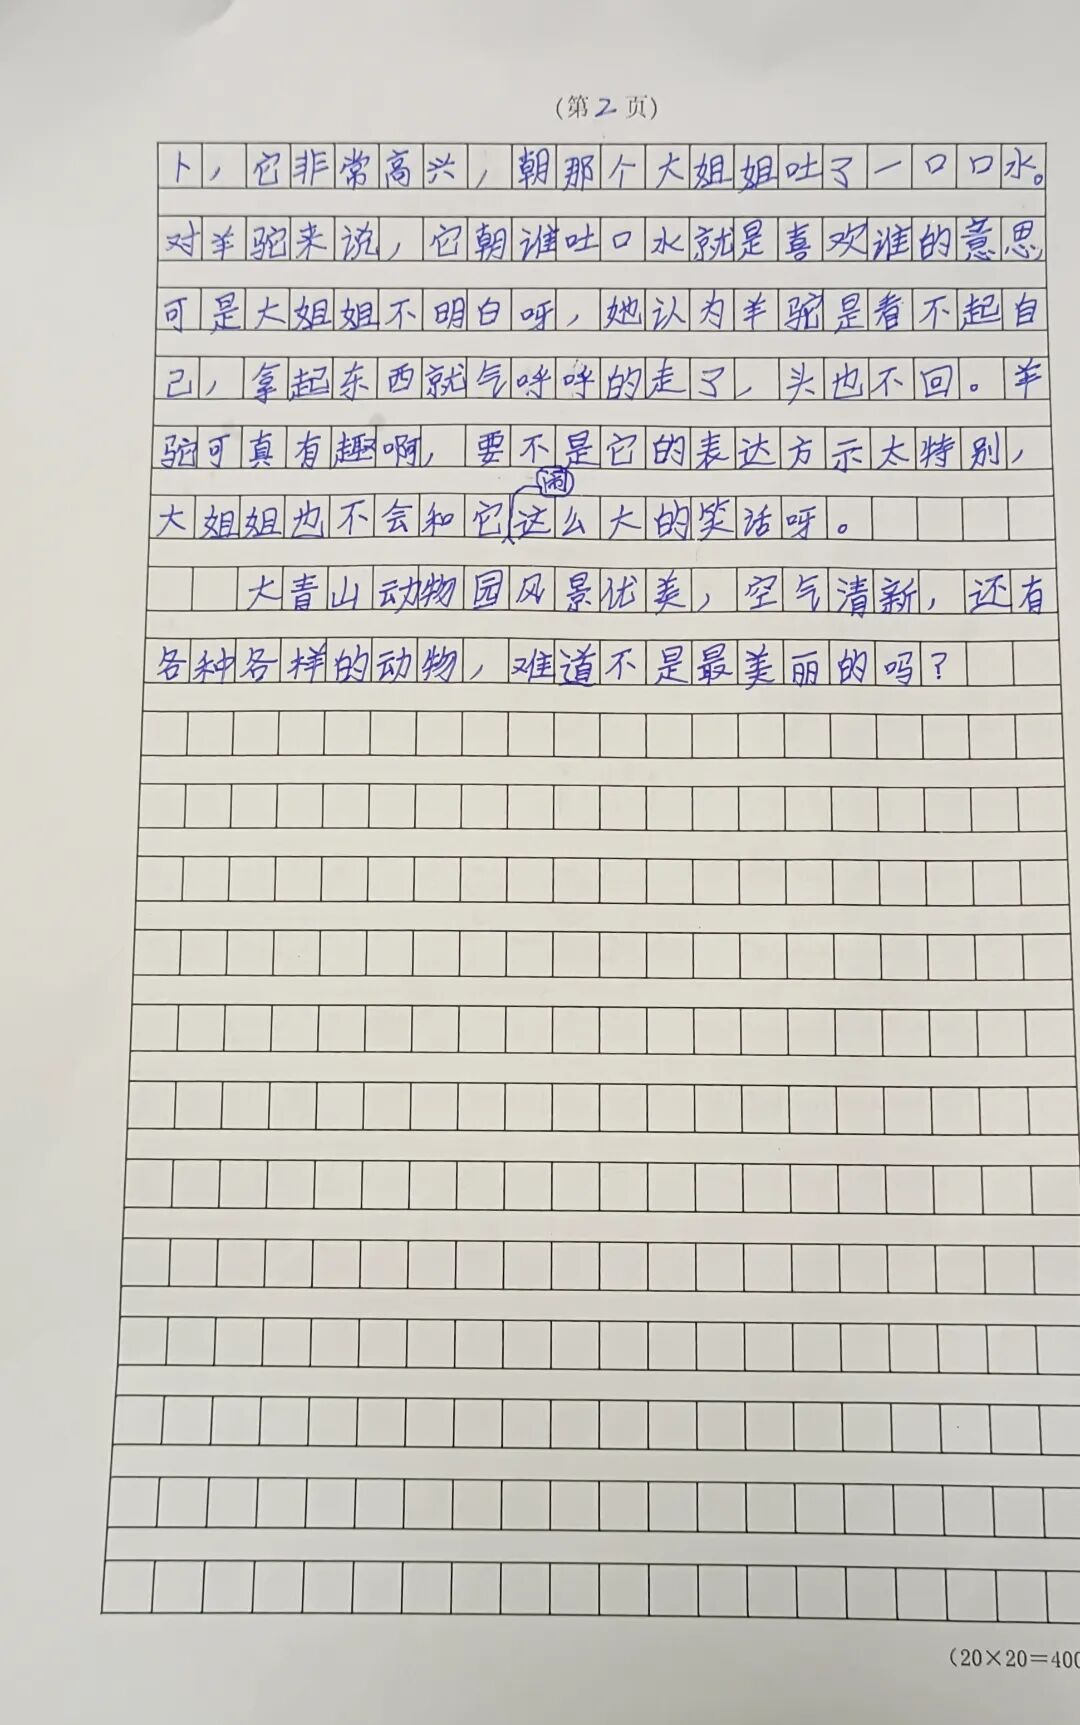 (第2页)
卜，它非常高兴，朝那个大姐姐吐了一口口水。
对羊驼来说，它朝谁吐口水就是喜欢谁的意思，
可是大姐姐不明白呀，她认为羊驼是看不起自
己，拿起东西就气呼呼的走了，头也不回。羊
驼可真有趣啊，要不是它的表达方示太特别，
大姐姐也不会和它闹这么大的笑话呀。
大青山动物园风景优美，空气清新，还有
各种各样的动物，难道不是最美丽的吗？
(20×20=400